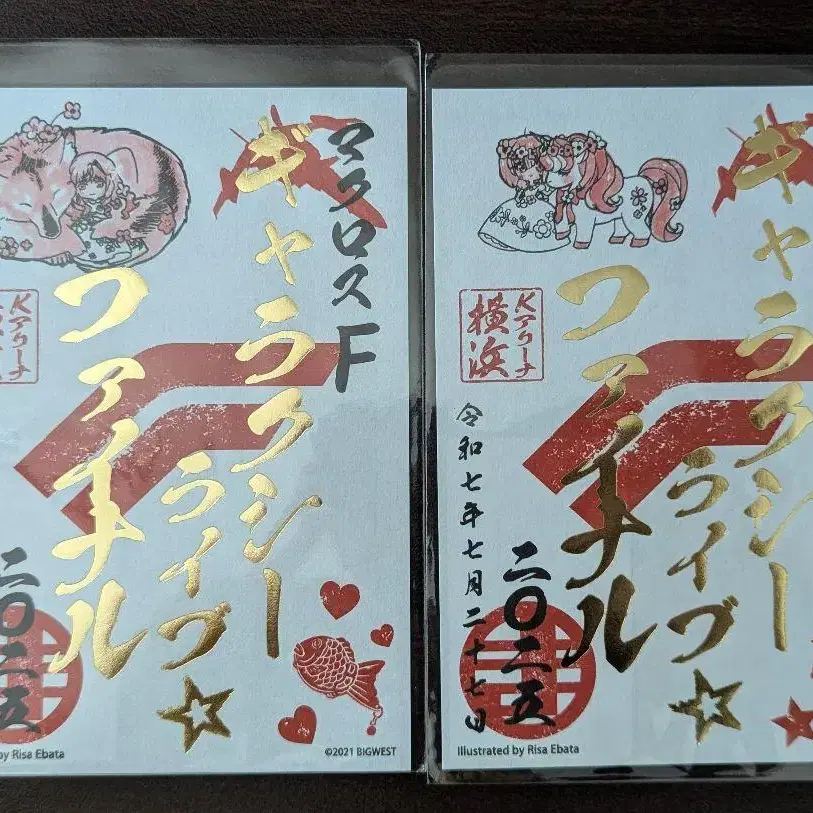 マクロスF
ギャラクシー
ライブ☆
ファイナル
二〇二五
by Risa Ebata
©2021 BIGWEST
ギャラクシー
ライブ☆
ファイナル
二〇二五
Kアリーナ
横浜
令和七年七月二十七日
Illustrated by Risa Ebata